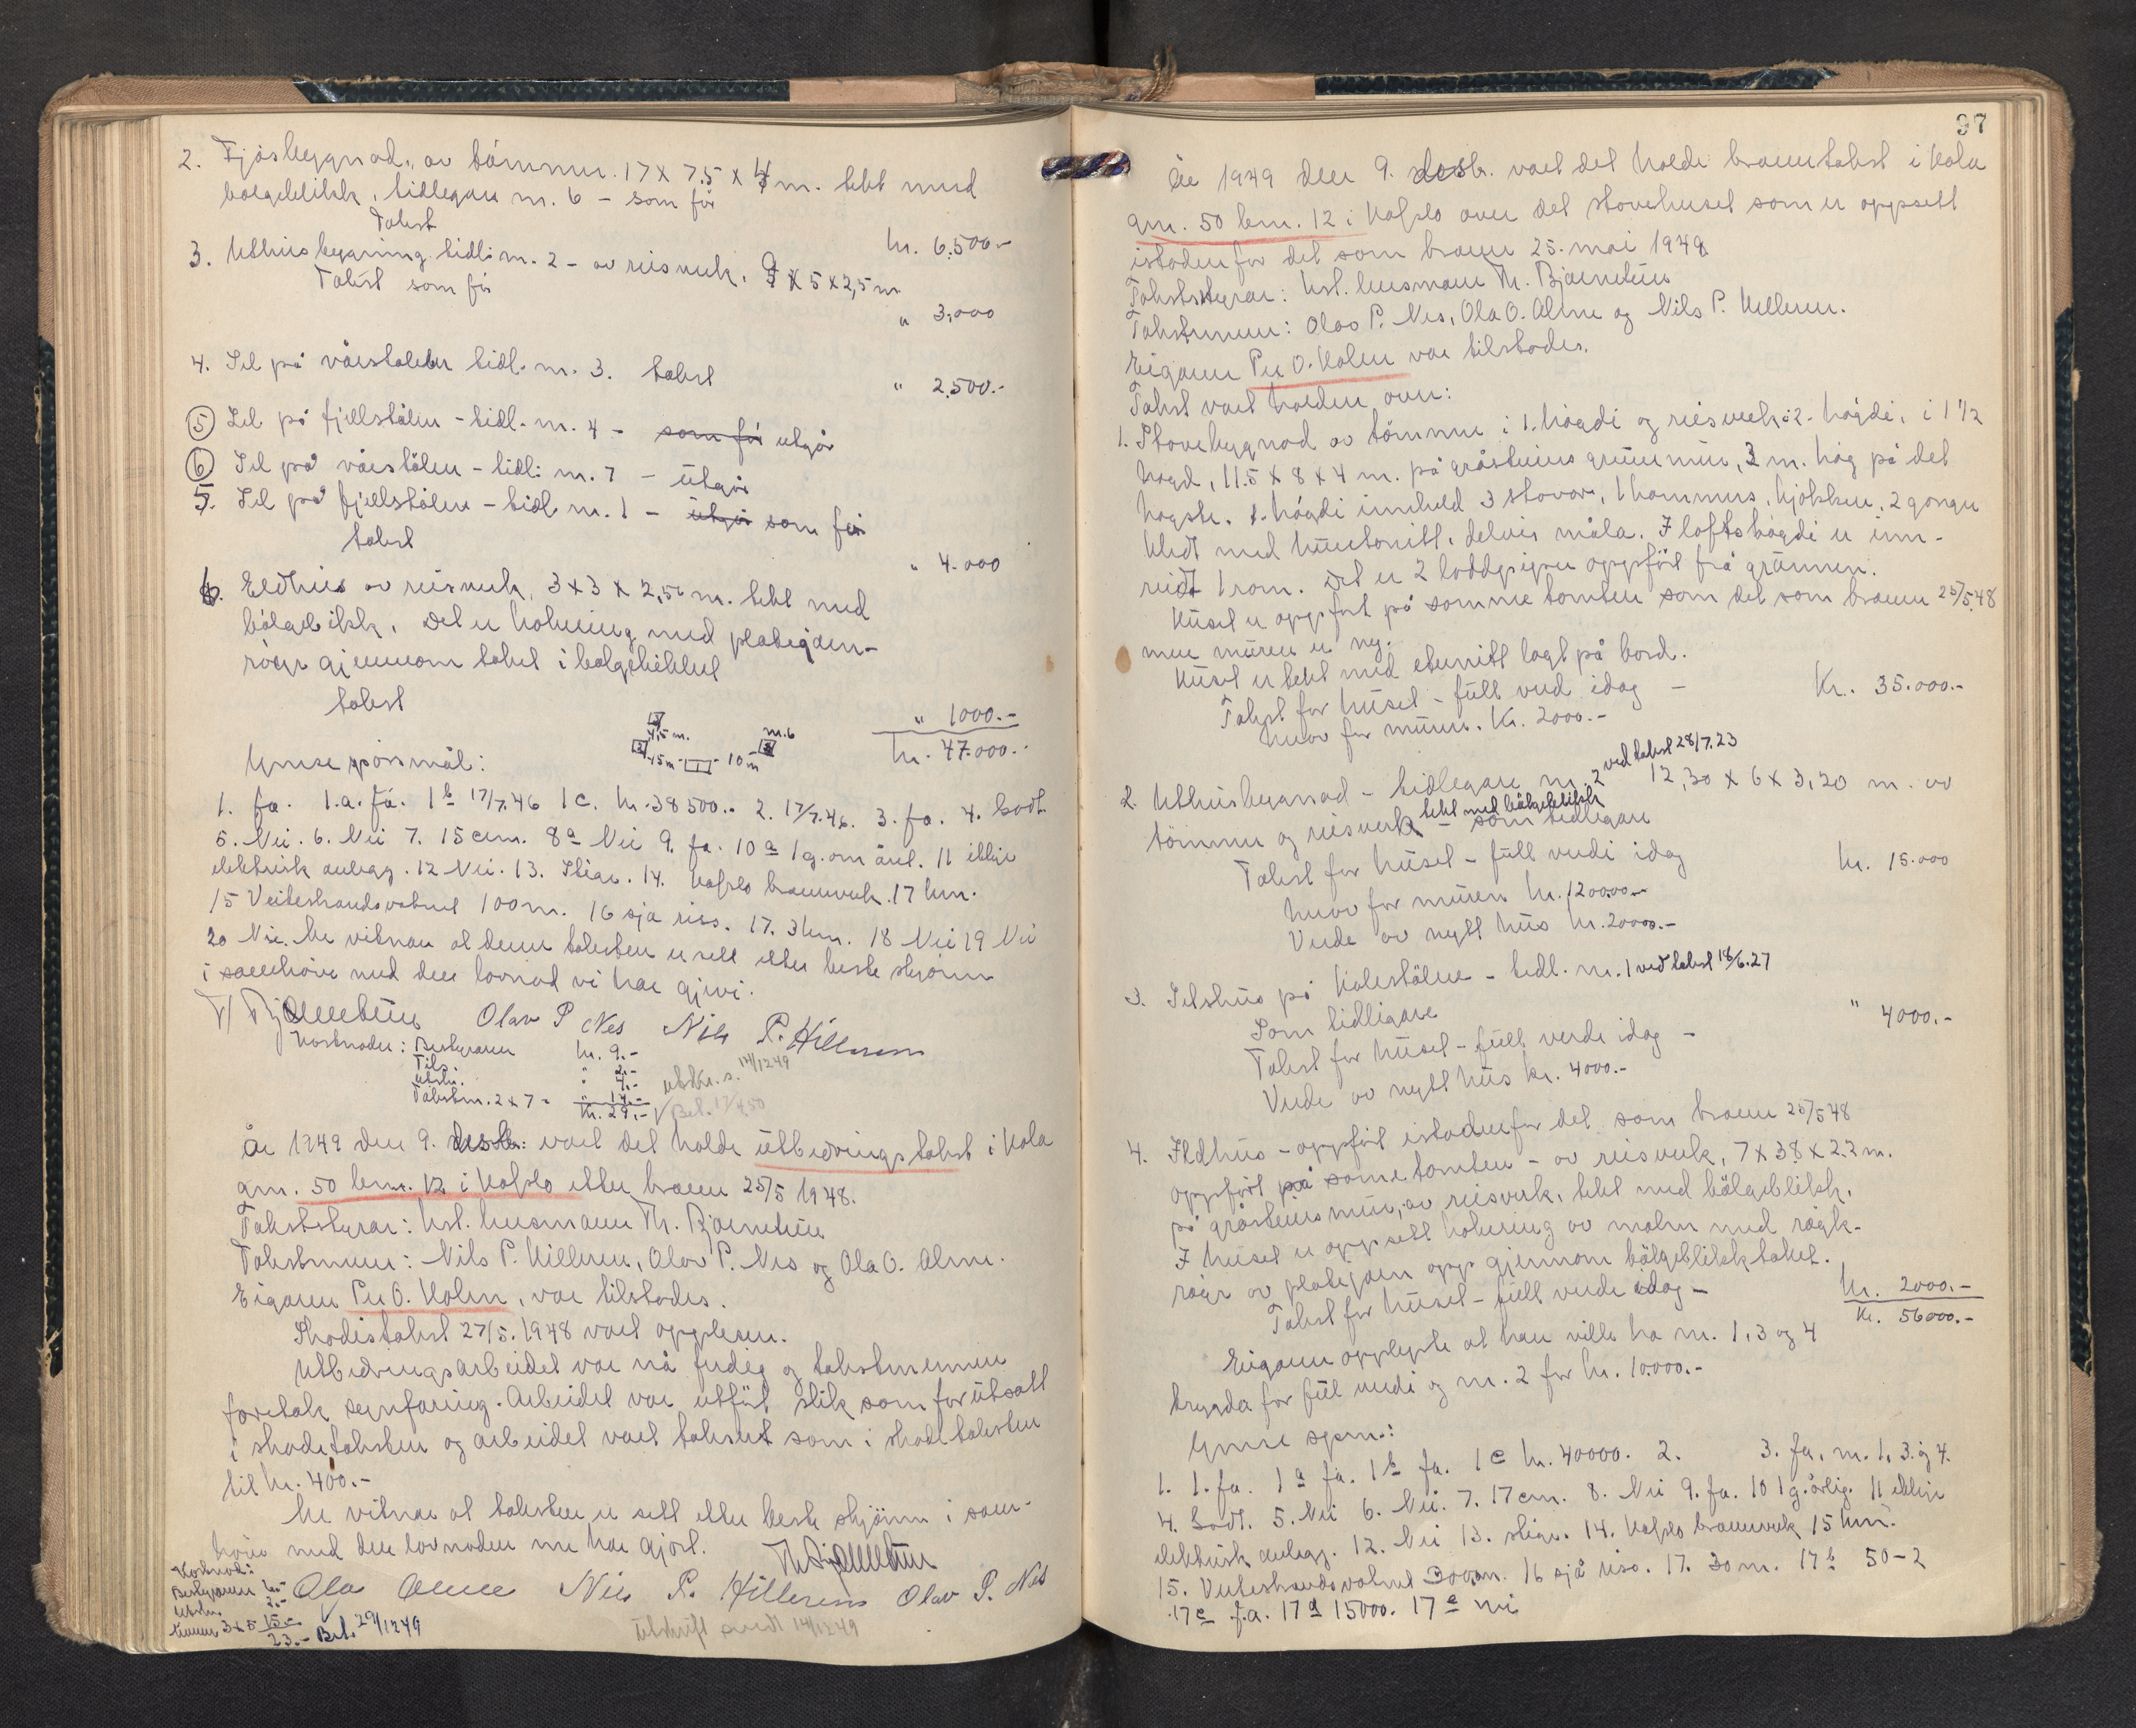 2. Fjøsbygnad, av tømmer. 17 x 7.5 x 4 m. tekt med
bølgeblikk, tidlegare nr. 6 - som før
Takst kr. 6.500.-
3. Uthusbygning tidl. nr. 2 - av reisverk, 9 x 5 x 2,5 m
Takst som før " 3.000
4. Sel på vårstølen tidl. nr. 3. takst " 2.500.-
5 Sel på fjellstølen - tidl. nr. 4 - som før utgår
6 Sel på vårstølen - tidl. nr. 7 - utgår
5. Sel på fjellstølen - tidl. nr. 1 - utgår som før
takst " 4.000
6. Eldhus av reisverk, 3 x 3 x 2,50 m. tekt med
bølgeblikk. Det er komring med platejarn-
røyr gjennom taket i bølgeblikket
takst " 1000.-
kr. 47.000.-
4,5 m. nr. 6
15 m - 10 m
Ymse spørsmål:
1. Ja. 1.a. Ja. 1 b 17/7.46 1 c. kr. 38500.- 2. 17/7.46. 3. Ja. 4. Godt.
5. Nei. 6. Nei 7. 15 cm. 8 a Nei 9. Ja. 10 a 1 g. om året. 11 ikkje
elektrisk anlegg. 12 Nei. 13. Stige. 14. Hafslo brannverk 17 km.
15 Veitestrandsvatnet 100 m. 16 sjå riss. 17. 3 km. 18 Nei 19 Nei
20 Nei. Me vitnar at denne taksten er sett etter beste skjønn
i samhøve med den lovnad vi har gjevi.
Th Bjørnetun Olav P Nes Nils P. Hillerøen
Kostnader: Bestyraren kr. 9.-
Tils. " 2.-
Utskr. " 4.- utskr. s. 14/12 49
Takstm. 2 x 7 = " 14.-
kr. 29.- Bet. 17/4.50
År 1949 den 9. desbr. vart det halde utbedringstakst i Kola
gnr. 50 bnr. 12 i Hafslo etter brann 25/5 1948.
Takststyrar: kst. lensmann Th. Bjørnetun
Takstmenn: Nils P. Hilleren, Olav P. Nes og Ola O. Alme.
Eigaren Per O. Kolen, var tilstades.
Skadetakst 27/5. 1948 vart opplesen.
Utbedringsarbeidet var nå ferdig og takstmennene
foretok synfaring. Arbeidet var utført slik som forutsatt
i skadetaksten og arbeidet vart taksert som i skadetaksten
til kr. 400.-
Me vitnar at taksten er sett etter beste skjønn i sam-
høve med den lovnaden me har gjort. Th Bjørnetun
Ola Alme Nils P. Hillerøen Olav P. Nes
Kostnad:
Bestyraren 6.-
Utskr. 2.-
Menn 3 x 5 15.-
23.- Bet. 29/12 49
Utskrift sendt 14/12 49
97
År 1949 den 9. desbr. vart det halde branntakst i Kola
gnr. 50 bnr. 12 i Hafslo over det stovehuset som er oppsett
istaden for det som brann 25. mai 1948
Takststyrar: kst. lensmann Th. Bjørnetun
Takstmenn: Olav P. Nes, Ola O. Alme og Nils P. Hilleren.
Eigaren Per O. Kolen var tilstades.
Takst vart halden over:
1. Stovebygnad av tømmer i 1. høgdi og reisverk i 2. høgdi, i 1 1/2
høgd, 11.5 x 8 x 4 m. på gråsteins grunnmur, 2 m. høg på det
høgste. 1. høgdi inneheld 3 stover, 1 kammers, kjøkken, 2 gonger
kledt med huntonitt, delvis måla. I loftshøgdi er inn-
reidt 1 rom. Det er 2 loddpiper oppført frå grunnen.
Huset er oppført på samme tomten som det som brann 25/5.48
men muren er ny.
Huset er tekt med eternitt lagt på bord.
Takst for huset - full verd idag - Kr. 35.000.-
herav for muren. Kr. 2000.-
2. Uthusbygnad - tidlegare nr. 2 ved takst 28/7.23 12,30 x 6 x 3,20 m. av
tømmer og reisverk tekt med bølgeblikk - som tidlegare
Takst for huset - full verdi idag kr. 15.000
herav for muren kr. 1200.00.-
Verde av nytt hus kr. 20000.-
3. Selshus på Kolestølen - tidl. nr. 1 ved takst 18/6.27
Som tidligare
Takst for huset - full verde idag - " 4000.-
Verde av nytt hus kr. 4000.-
4. Eldhus - oppført istaden for det som brann 25/5 48
oppført på same tomten - av reisverk, 7 x 3.8 x 2.2 m.
på gråsteins mur, av reisverk, tekt med bølgeblikk.
I huset er oppsett komring av malm med røyk-
røyr av platejarn opp gjennom bølgeblikktaket.
Takst for huset - full verde idag - kr. 2000.-
Kr. 56000.-
Eigaren opplyste at han ville ha nr. 1, 3 og 4
trygda for full verdi og nr. 2 for kr. 10.000.-
Ymse spm.:
1. 1. Ja. 1 a Ja. 1 b Ja. 1 c kr. 40000. 2. 3. Ja, nr. 1, 3. og 4.
4. Godt. 5. Nei 6. Nei. 7. 17 cm. 8. Nei 9. Ja. 10 1 g. årlig. 11 ikkje
elektrisk anlegg. 12. Nei 13. stige. 14. Hafslo brannverk 15 km.
15. Veitestrandsvatnet 300 m. 16 sjå riss. 17. 30 m. 17 b 50-2
17 c Ja. 17 d 15000. 17 e nei